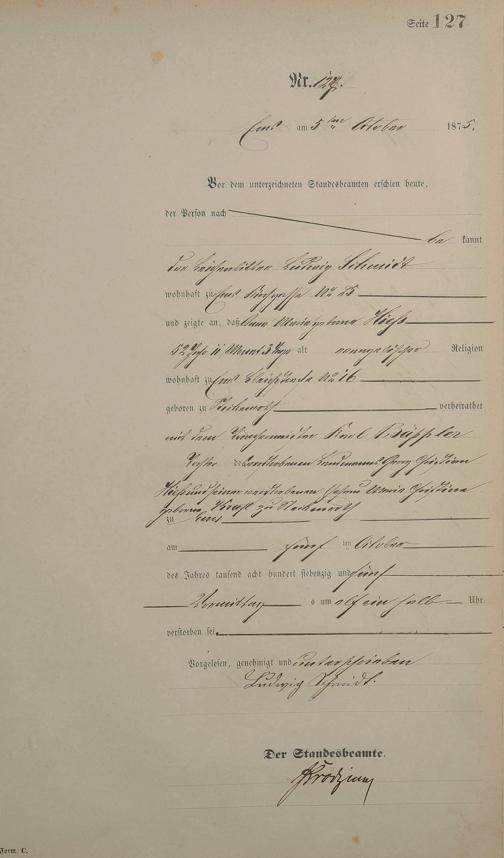 Seite 127
Nr. 127.
Ems am 5ten October 1875.
Vor dem unterzeichneten Standesbeamten erschien heute,
der Person nach
be kannt
der Ludwig Schmidt
wohnhaft zu Ems No 25
und zeigte an, daß Anna Maria geborne
52 Jahr 11 Monat 3 Tage alt evangelischer Religion
wohnhaft zu Ems No 16
geboren zu verheirathet
mit dem Karl
Tochter des verstorbenen Landmanns Georg Christian
und seiner verstorbenen Ehefrau Maria Christina
geborne Kraft zu
zu Ems
am fünf ten October
des Jahres tausend acht hundert siebenzig und fünf
Vormittag s um elf ein halb Uhr
verstorben sei.
Vorgelesen, genehmigt und unterschrieben
Ludwig Schmidt.
Der Standesbeamte.
Form. C.